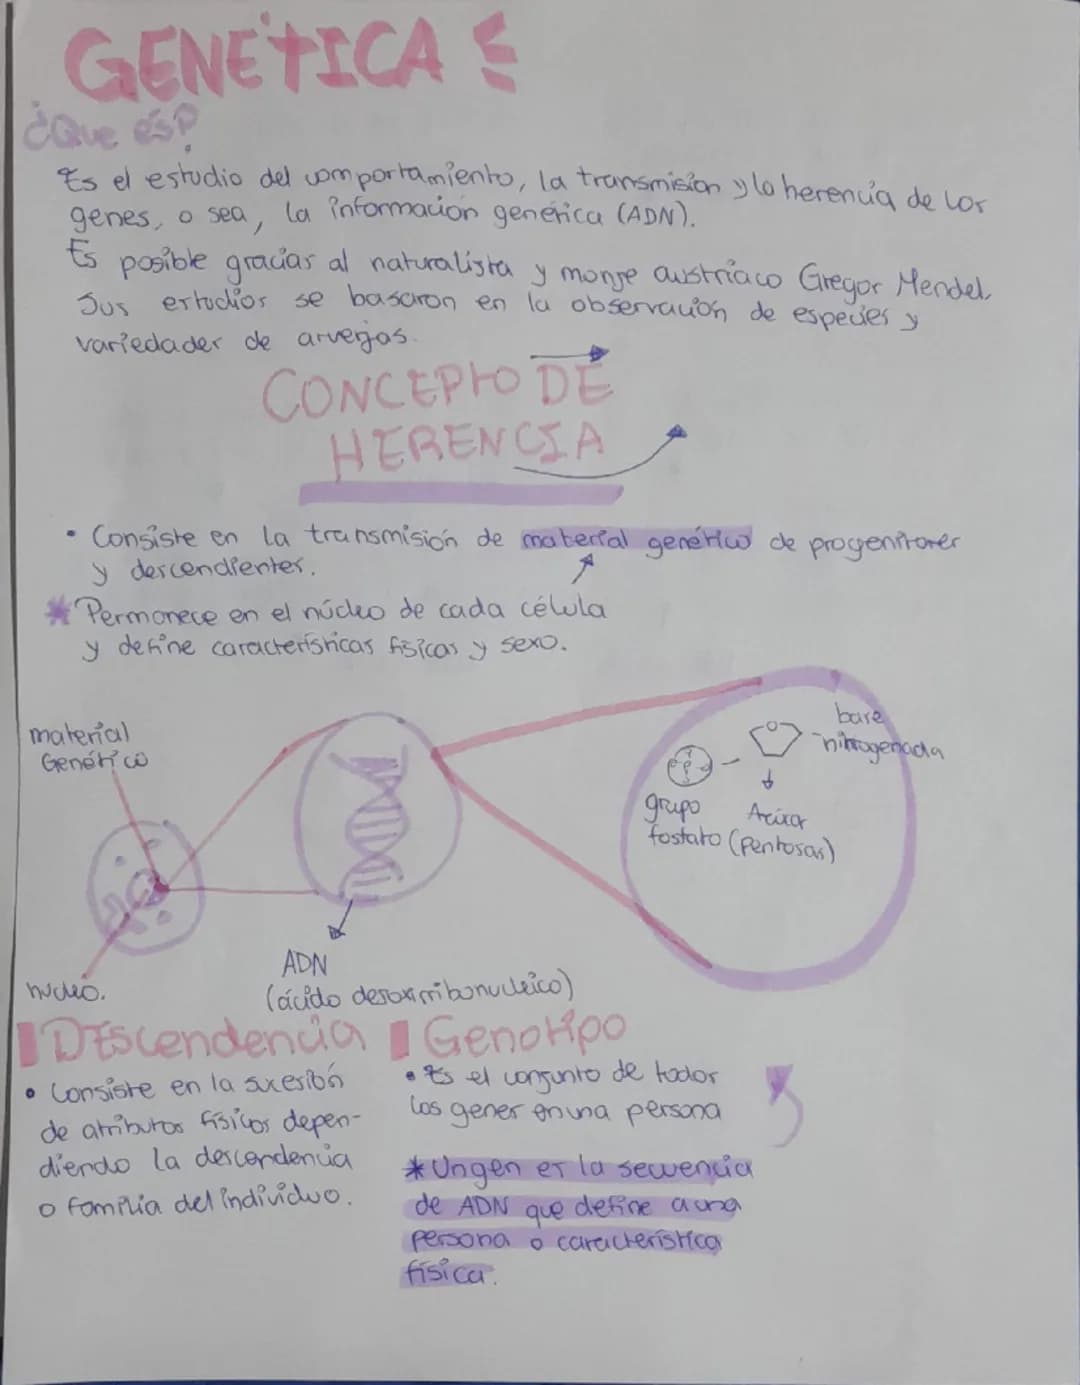 GENÉTICA
¿Que és?
Es el estudio del comportamiento, la transmisión y la herencia de los
genes, o sea, la información genética (ADN).
Es posible gracias al naturalista y monje austríaco Gregor Mendel.
Sus estudios se basaron en la observación de especies y
variedades de arvejas.
CONCEPTO DE
HERENCIA
• Consiste en la transmisión de material genético de progenitores
y descendientes.
* Permanece en el núcleo de cada célula
y define características físicas y sexo.
material
Genético
núcleo.
ADN
(ácido desoxirribonucleico)
base
nitrogenada
grupo
fosfato
Azúcar
(Pentosas)
Descendencia
• Consiste en la sucesión
de atributos físicos depen-
diendo la descendencia
o familia del individuo.
Genotipo
• Es el conjunto de todos
los genes en una persona
* Un gen es la secuencia
de ADN que define a una
persona o característica
física.